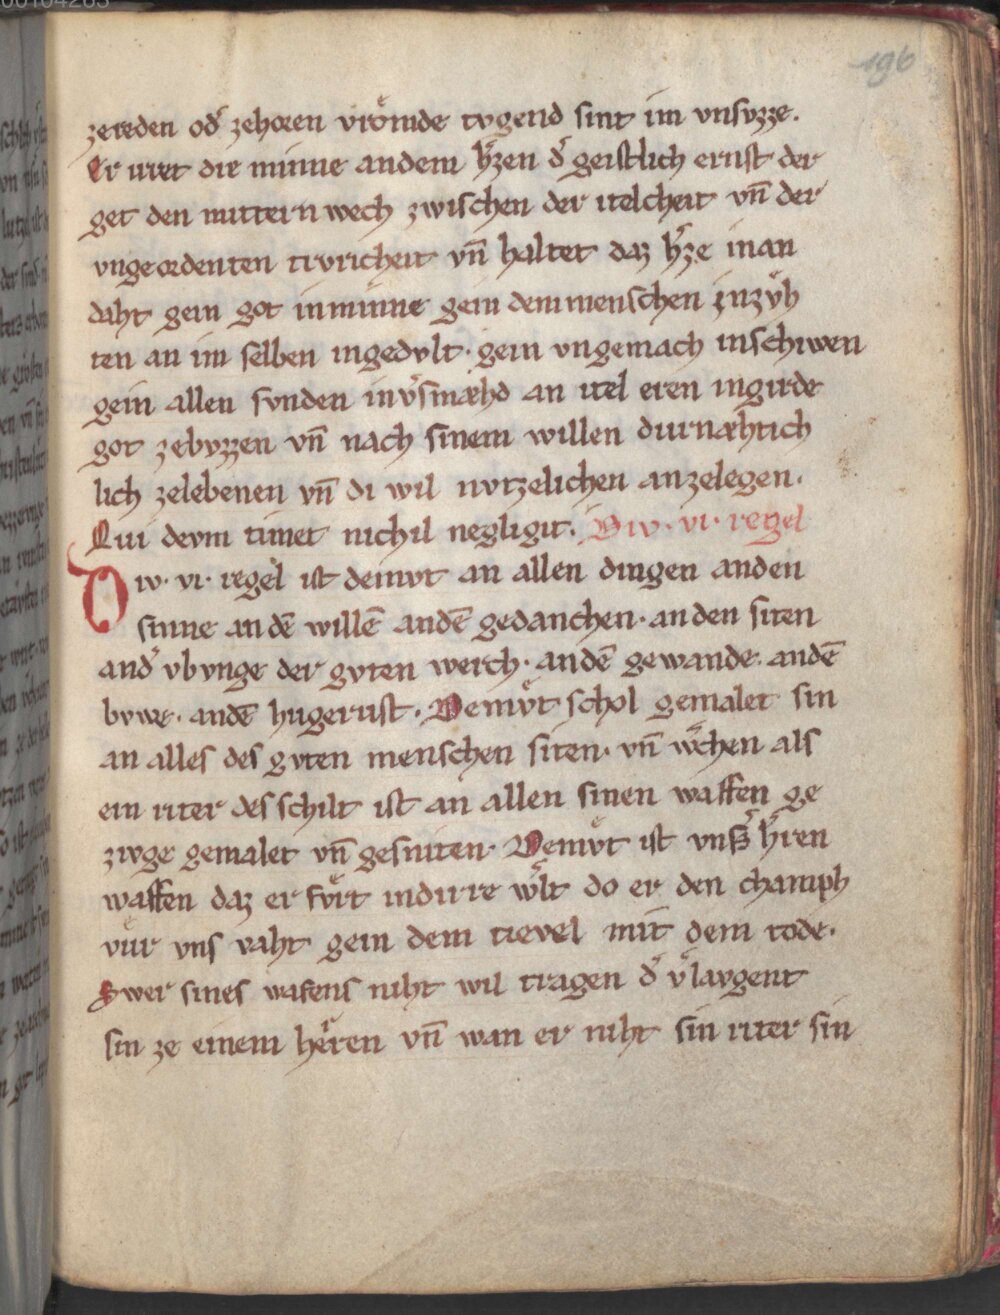 196
zereden od͛ zehoꝛen vroͤmde tvgend sint im vnsvzze.
Er irret die minne andem h͛zen d͛ geistlich ernst der
get den mittern wech zwischen der itelcheit vn̄ der
vngeoꝛdenten trvricheit vn̄ haltet daz h͛ze inan
daht gein got inminne gein dem menschen inzvh
ten an im selben ingedvlt · gein vngemach inschiwen
gein allen svnden inv͛smæhd an itel eren ingirde
got zebvzzen vn̄ nach sinem willen durnæhtich
lich zelebenen vn̄ di wil nvtzelichen anzelegen.
Qui devm timet nichil negligit. Diw · vi · regel
Diw · vi · regel ist demvt an allen dingen anden
sinne an dē willē andē gedanchen · an den siten
and͛ vbvnge der gvten werch · andē gewande · andē
bvwe · andē hugerust · Demvͦt schol gemalet sin
an alles des gvten menschen siten · vn̄ w͛chen als
ein riter des schilt ist an allen sinen waffen ge
zivge gemalet vn̄ gesniten · Demvͦt ist vns͛ h͛ren
waffen daz er fvͦrt indirre w͛lt do er den champh
vuͤr vns vaht gein dem tievel mit dem tode.
Swer sines wafens niht wil tragen d͛ v͛lavgent
sin ze einem heͤren vn̄ wan er niht sin riter sin